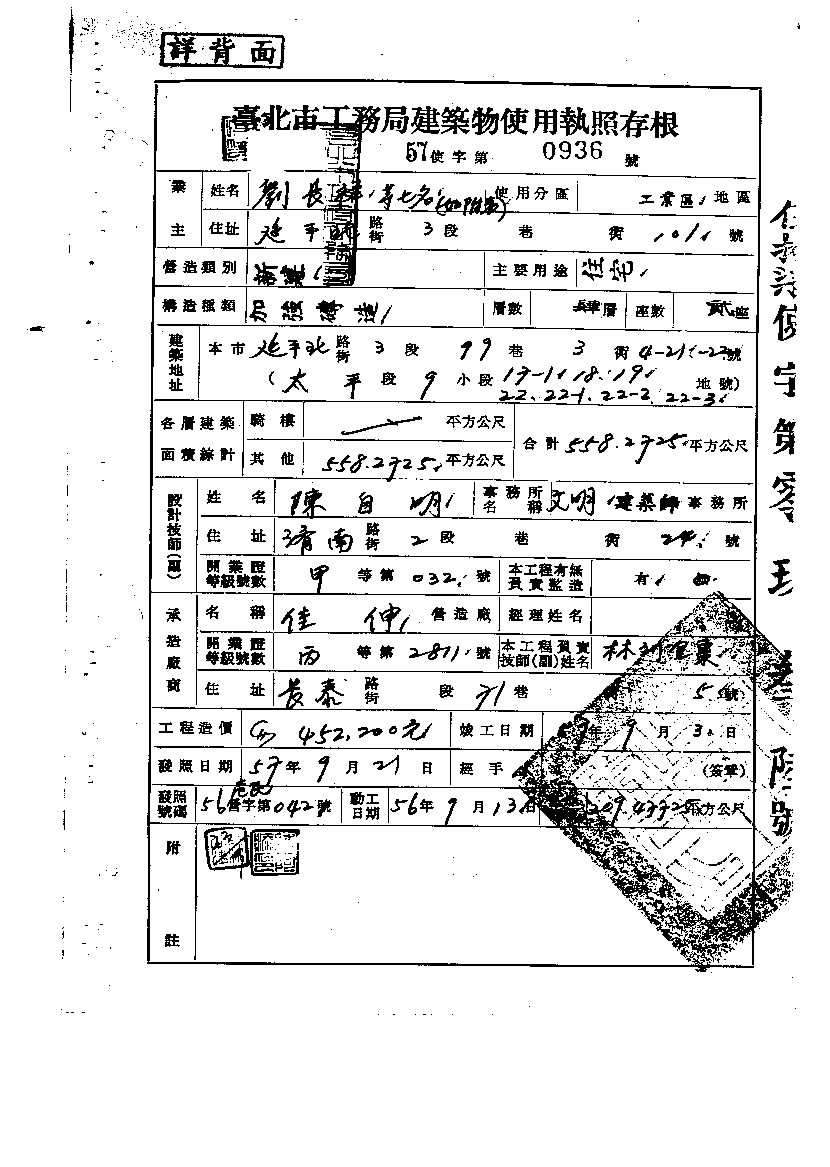 詳背面
臺北市工務局建築物使用執照存根
57使字第 0936 號
業主 姓名 劉長 等七名 使用分區 工業區 地區
住址 延平 路街 3段 巷 街 101 號
營造類別 新建 主要用途 住宅
構造種類 加強磚造 層數 肆層 座數 貳座
建築地址 本市 延平北 路街 3 段 99 巷 3 街 4-21 -23號
(太平段 9 小段 17-1. 18. 19. 地號)
22. 22-1. 22-2. 22-3.
各層建築面積綜計 騎樓 平方公尺 合計 558.2725 平方公尺
其他 558.2725 平方公尺
設計技師(副) 姓名 陳自明 事務所名稱 文明建築師事務所
住址 濟南 路街 2段 巷 街 24 號
開業證等級號數 甲 等第 032 號 本工程有無負責監造 有
承造廠商 名稱 佳伸 營造廠 經理姓名
開業證等級號數 丙 等第 2811 號 本工程負責技師(副)姓名 林
住址 長泰 路街 段 71巷 5 號
工程造價 452,200元 竣工日期 57年 9 月 3 日
發照日期 57年 9 月 21 日 經手 (簽章)
發照號碼 56營字第042號 動工日期 56年 9 月 13日 209.43325平方公尺
附註
使字第零玖叁陸號